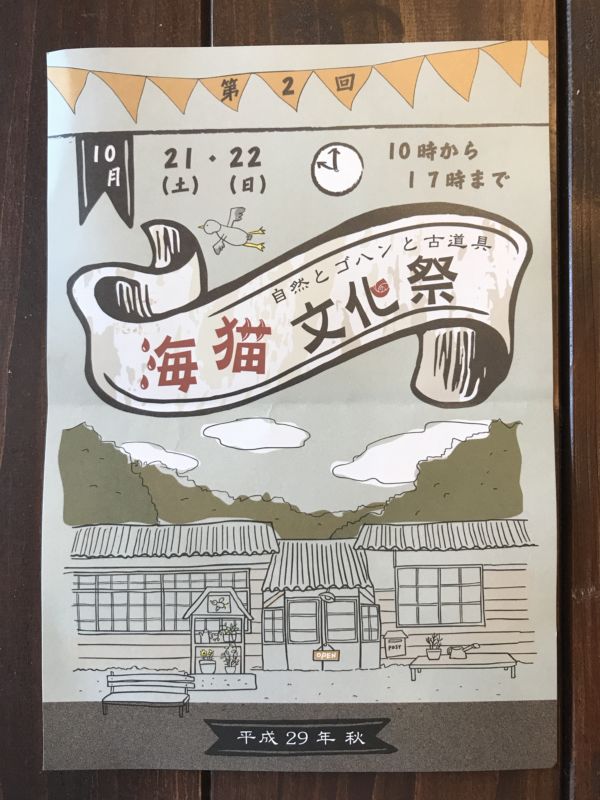 第2回
10月
21・22
(土) (日)
10時から
17時まで
自然とゴハンと古道具
海猫文化祭
OPEN
POST
平成29年秋